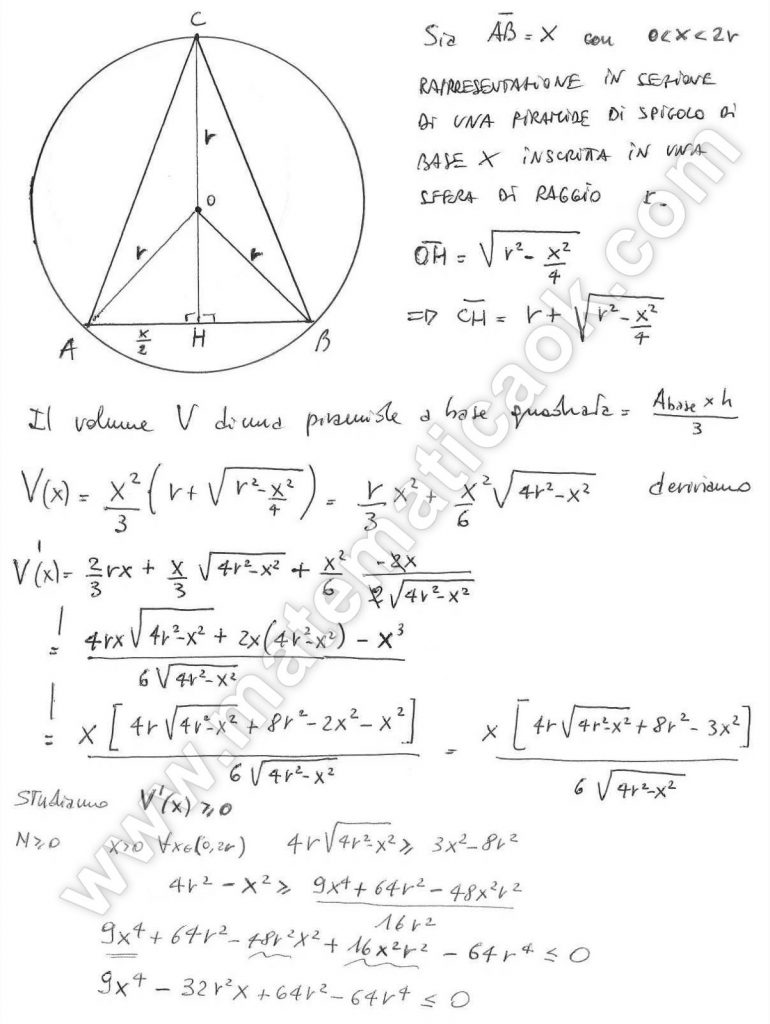 C
r
O
r
r
A
x/2
H
B
Sia AB̅ = X con 0<x<2r
RAPPRESENTAZIONE IN SEZIONE
DI UNA PIRAMIDE DI SPIGOLO DI
BASE X INSCRITTA IN UNA
SFERA DI RAGGIO r.
OH̅ = √(r² - x²/4)
=> CH̅ = r + √(r² - x²/4)
Il volume V di una piramide a base quadrata = (Abase × h)/3
V(x) = x²/3 (r + √(r² - x²/4)) = r/3 x² + x²/6 √(4r²-x²) deriviamo
V'(x) = 2/3 rx + x/3 √(4r²-x²) + x²/6 (-2x)/(2√(4r²-x²))
= (4rx√(4r²-x²) + 2x(4r²-x²) - x³)/(6√(4r²-x²))
= x[4r√(4r²-x²) + 8r² - 2x² - x²]/(6√(4r²-x²)) = x[4r√(4r²-x²) + 8r² - 3x²]/(6√(4r²-x²))
Studiamo V'(x) ≥ 0
N≥0 x>0 ∀x∈(0,2r) 4r√(4r²-x²) ≥ 3x²-8r²
4r² - x² ≥ (9x⁴ + 64r² - 48x²r²)/16r²
9x⁴ + 64r² - 48r²x² + 16x²r² - 64r⁴ ≤ 0
9x⁴ - 32r²x + 64r² - 64r⁴ ≤ 0
www.matematicaok.com